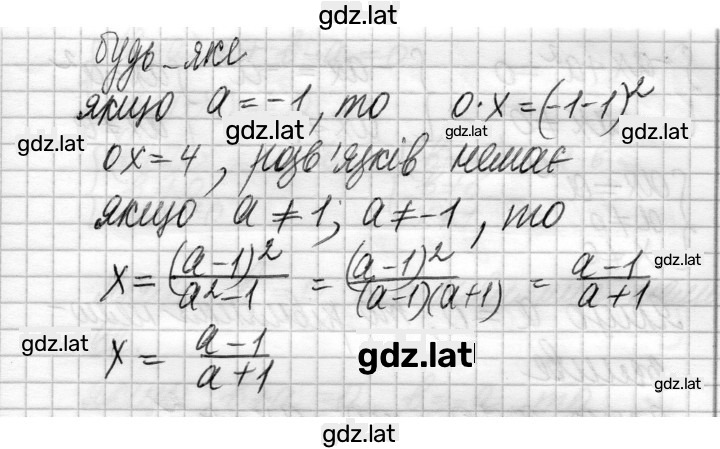 gdz.lat
будь-яке
gdz.lat
якщо a = -1, то 0·x = (-1-1)²
gdz.lat gdz.lat gdz.lat
0x = 4, розв'язків немає
якщо a ≠ 1; a ≠ -1, то
gdz.lat
x = (a-1)²/a²-1 = (a-1)²/(a-1)(a+1) = a-1/a+1
gdz.lat
x = a-1/a+1
gdz.lat
gdz.lat
gdz.lat